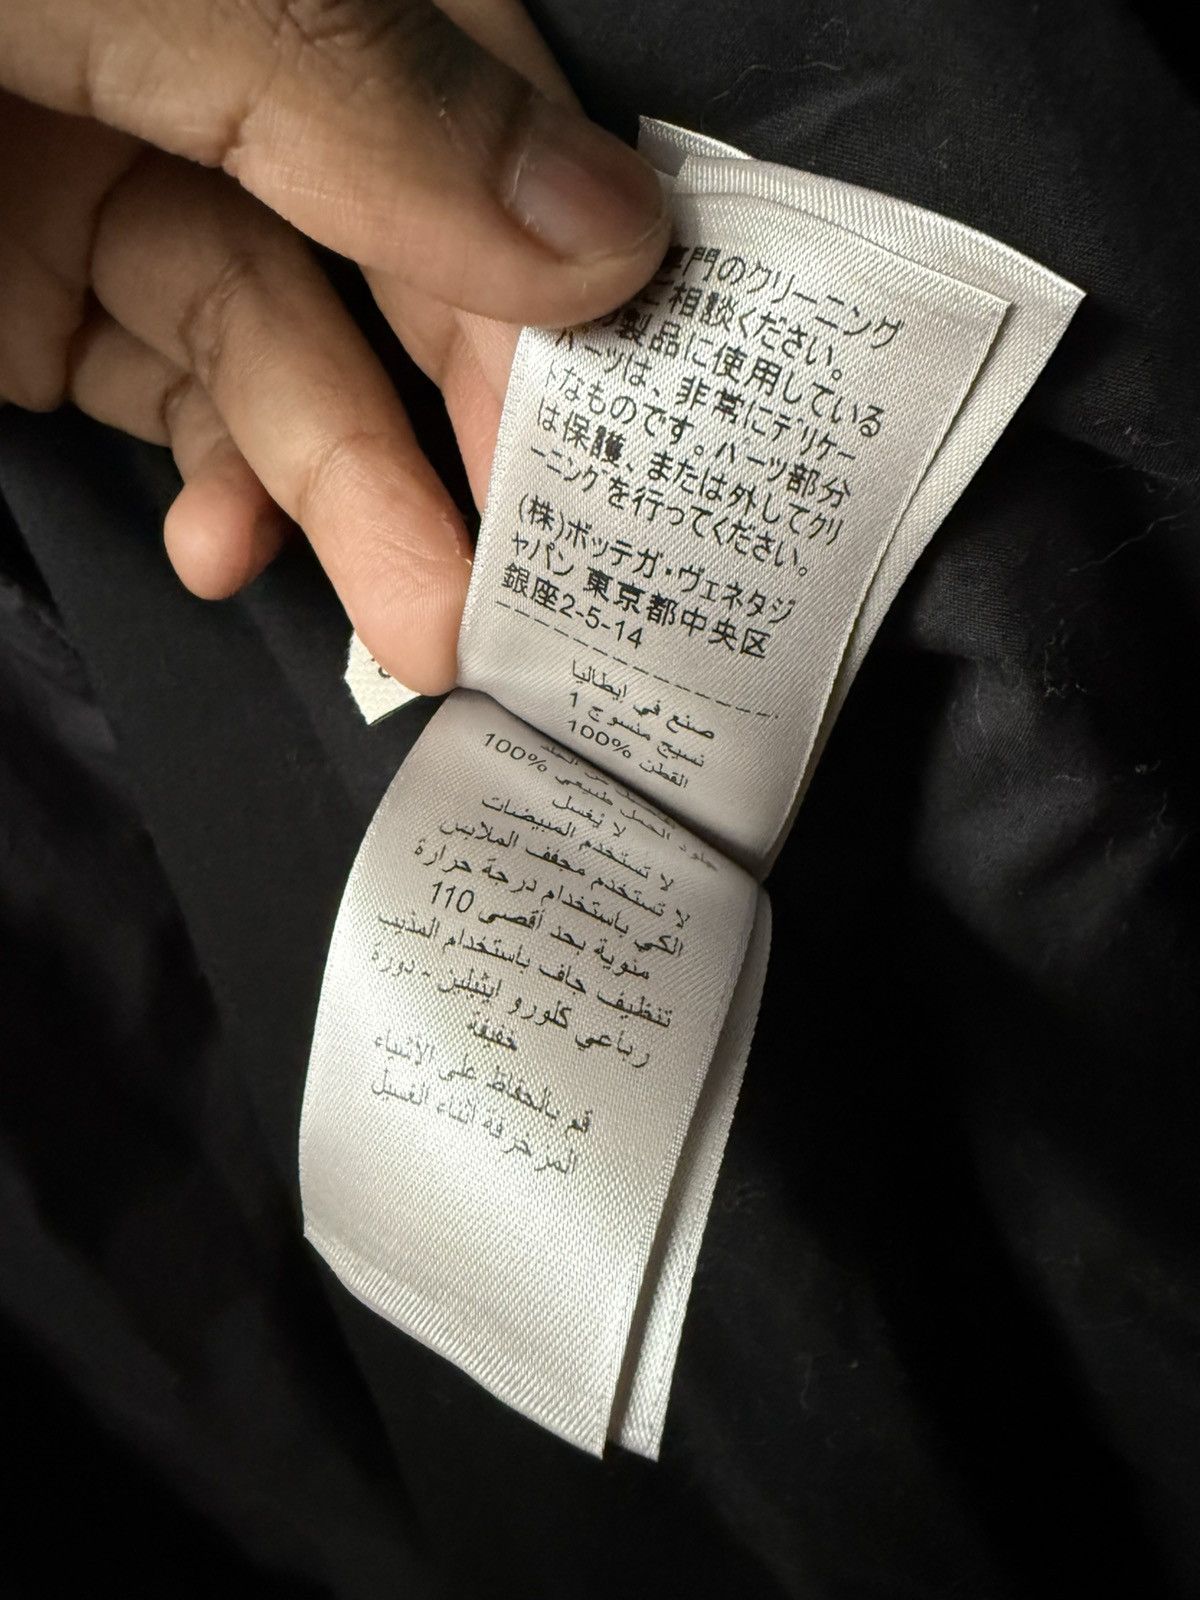 門のクリーニング
ご相談ください。
製品に使用している
パーツは、非常にデリケー
トなものです。パーツ部分
は保護、または外してクリ
ーニングを行ってください。
(株)ボッテガ・ヴェネタジ
ャパン 東京都中央区
銀座2-5-14
صنع في ايطاليا
نسيج منسوج 1
100% القطن
جلود الحمل طبيعي %100
لا يغسل
لا تستخدم المبيضات
لا تستخدم مجفف الملابس
الكي باستخدام درجة حرارة
منوية بحد أقصى 110
تنظيف جاف باستخدام المذيب
رباعي كلورو ايثيلين - دورة
خفيفة
قم بالحفاظ على الاشياء
المزخرفة أثناء الغسل